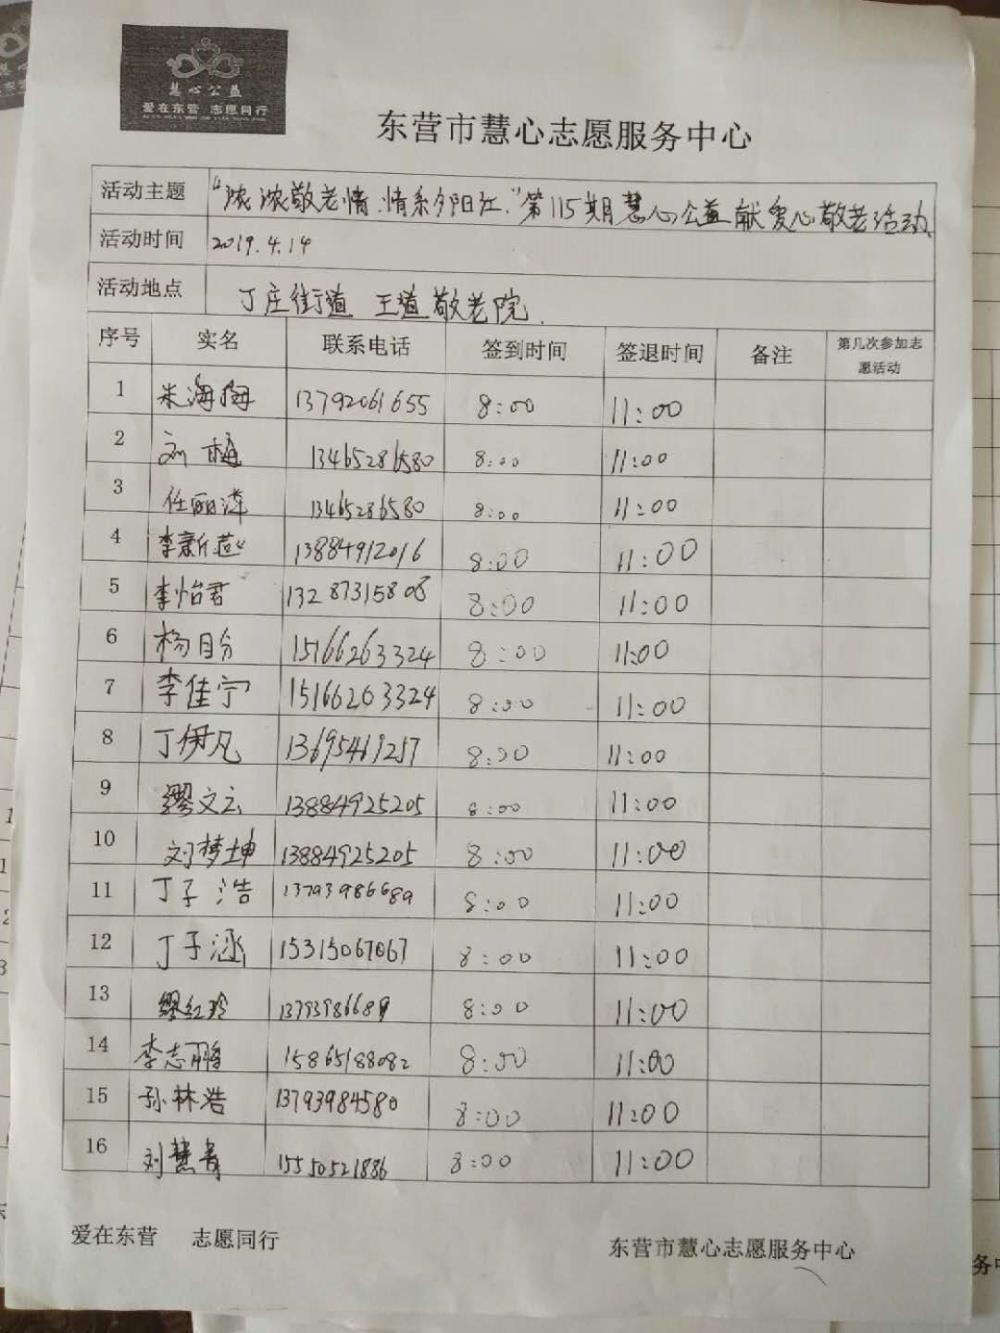 慧心公益
爱在东营 志愿同行
东营市慧心志愿服务中心
活动主题 "浓浓敬老情.情系夕阳红."第115期慧心公益献爱心敬老活动.
活动时间 2019.4.14
活动地点 丁庄街道 王道敬老院.
序号 实名 联系电话 签到时间 签退时间 备注 第几次参加志愿活动
1 朱海梅 13792061655 8:00 11:00
2 刘梅 13465286580 8:00 11:00
3 任丽萍 13465286580 8:00 11:00
4 李新 13884912016 8:00 11:00
5 李怡君 13287315808 8:00 11:00
6 杨目分 15166263324 8:00 11:00
7 李佳宁 15166263324 8:00 11:00
8 丁伊凡 13695469257 8:00 11:00
9 缪文云 13884925205 8:00 11:00
10 刘梦坤 13884925205 8:00 11:00
11 丁子浩 13793986689 8:00 11:00
12 丁子涵 15315067067 8:00 11:00
13 缪红玲 13793986689 8:00 11:00
14 李志鹏 15865188082 8:00 11:00
15 孙林浩 13793984580 8:00 11:00
16 刘慧青 15550521886 8:00 11:00
爱在东营 志愿同行 东营市慧心志愿服务中心